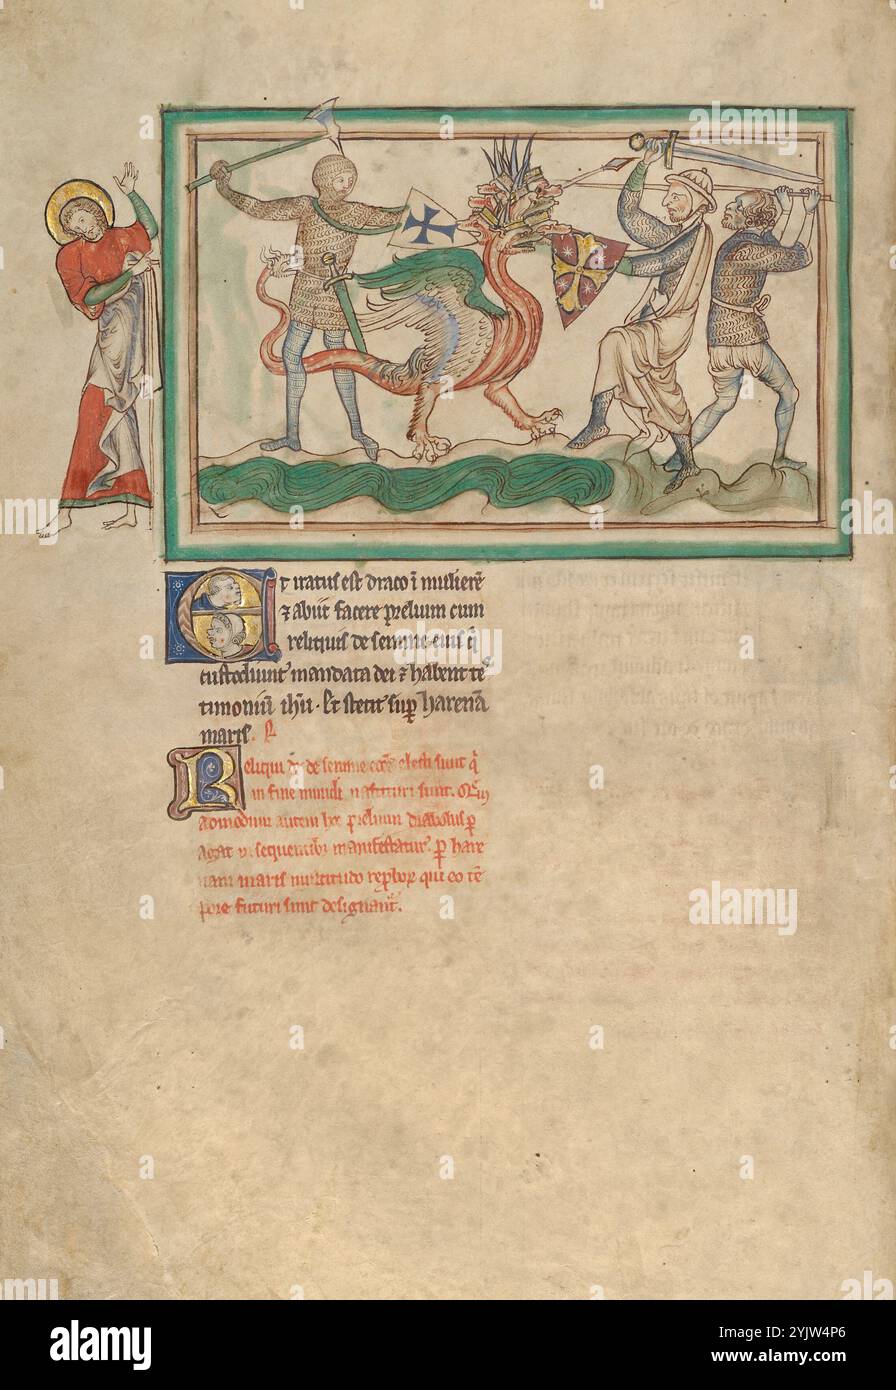 Et iratus est draco ī mulierē
⁊ abiit facere prelium cum
reliquis de semine eius q̄
custodiunt mandata dei ⁊ habent tes
timoniū ihū. Et stetit sup harenā
maris.
Reliqui de semine
in fine mundi nascituri sunt. Quē
admodum autem hoc prelium diabolus p
agat in sequentibȝ manifestatur. p hare
nam maris multitudo reprobor qui eo tē
pore futuri sunt designant.
alamy
Image ID: 2YJW4P6
www.alamy.com